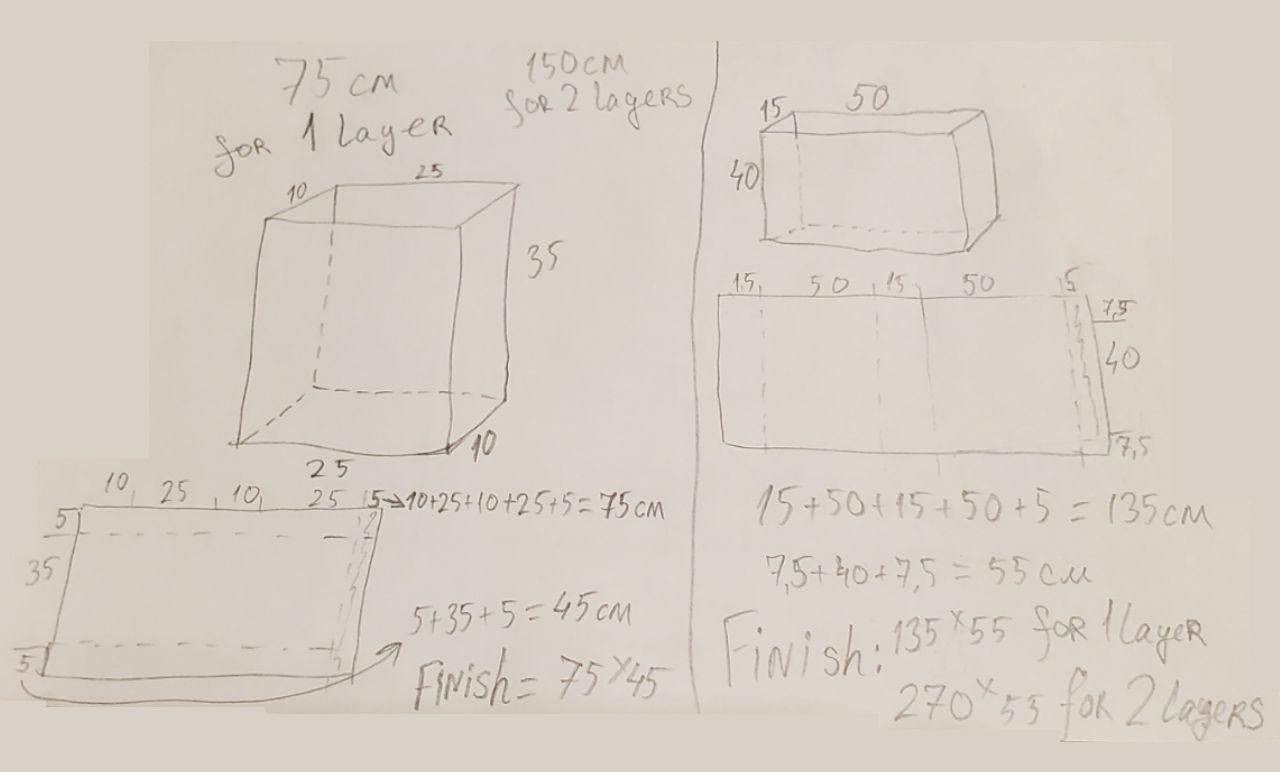 75 cm
for 1 Layer
150 cm
for 2 Layers
10
25
35
10
25
10 25 10 25 5 → 10+25+10+25+5 = 75 cm
5
35
5
5+35+5 = 45 cm
Finish = 75 x 45
15 50
40
15 50 15 50 5
7,5
40
7,5
15+50+15+50+5 = 135 cm
7,5+40+7,5 = 55 cm
Finish: 135 x 55 for 1 Layer
270 x 55 for 2 Layers